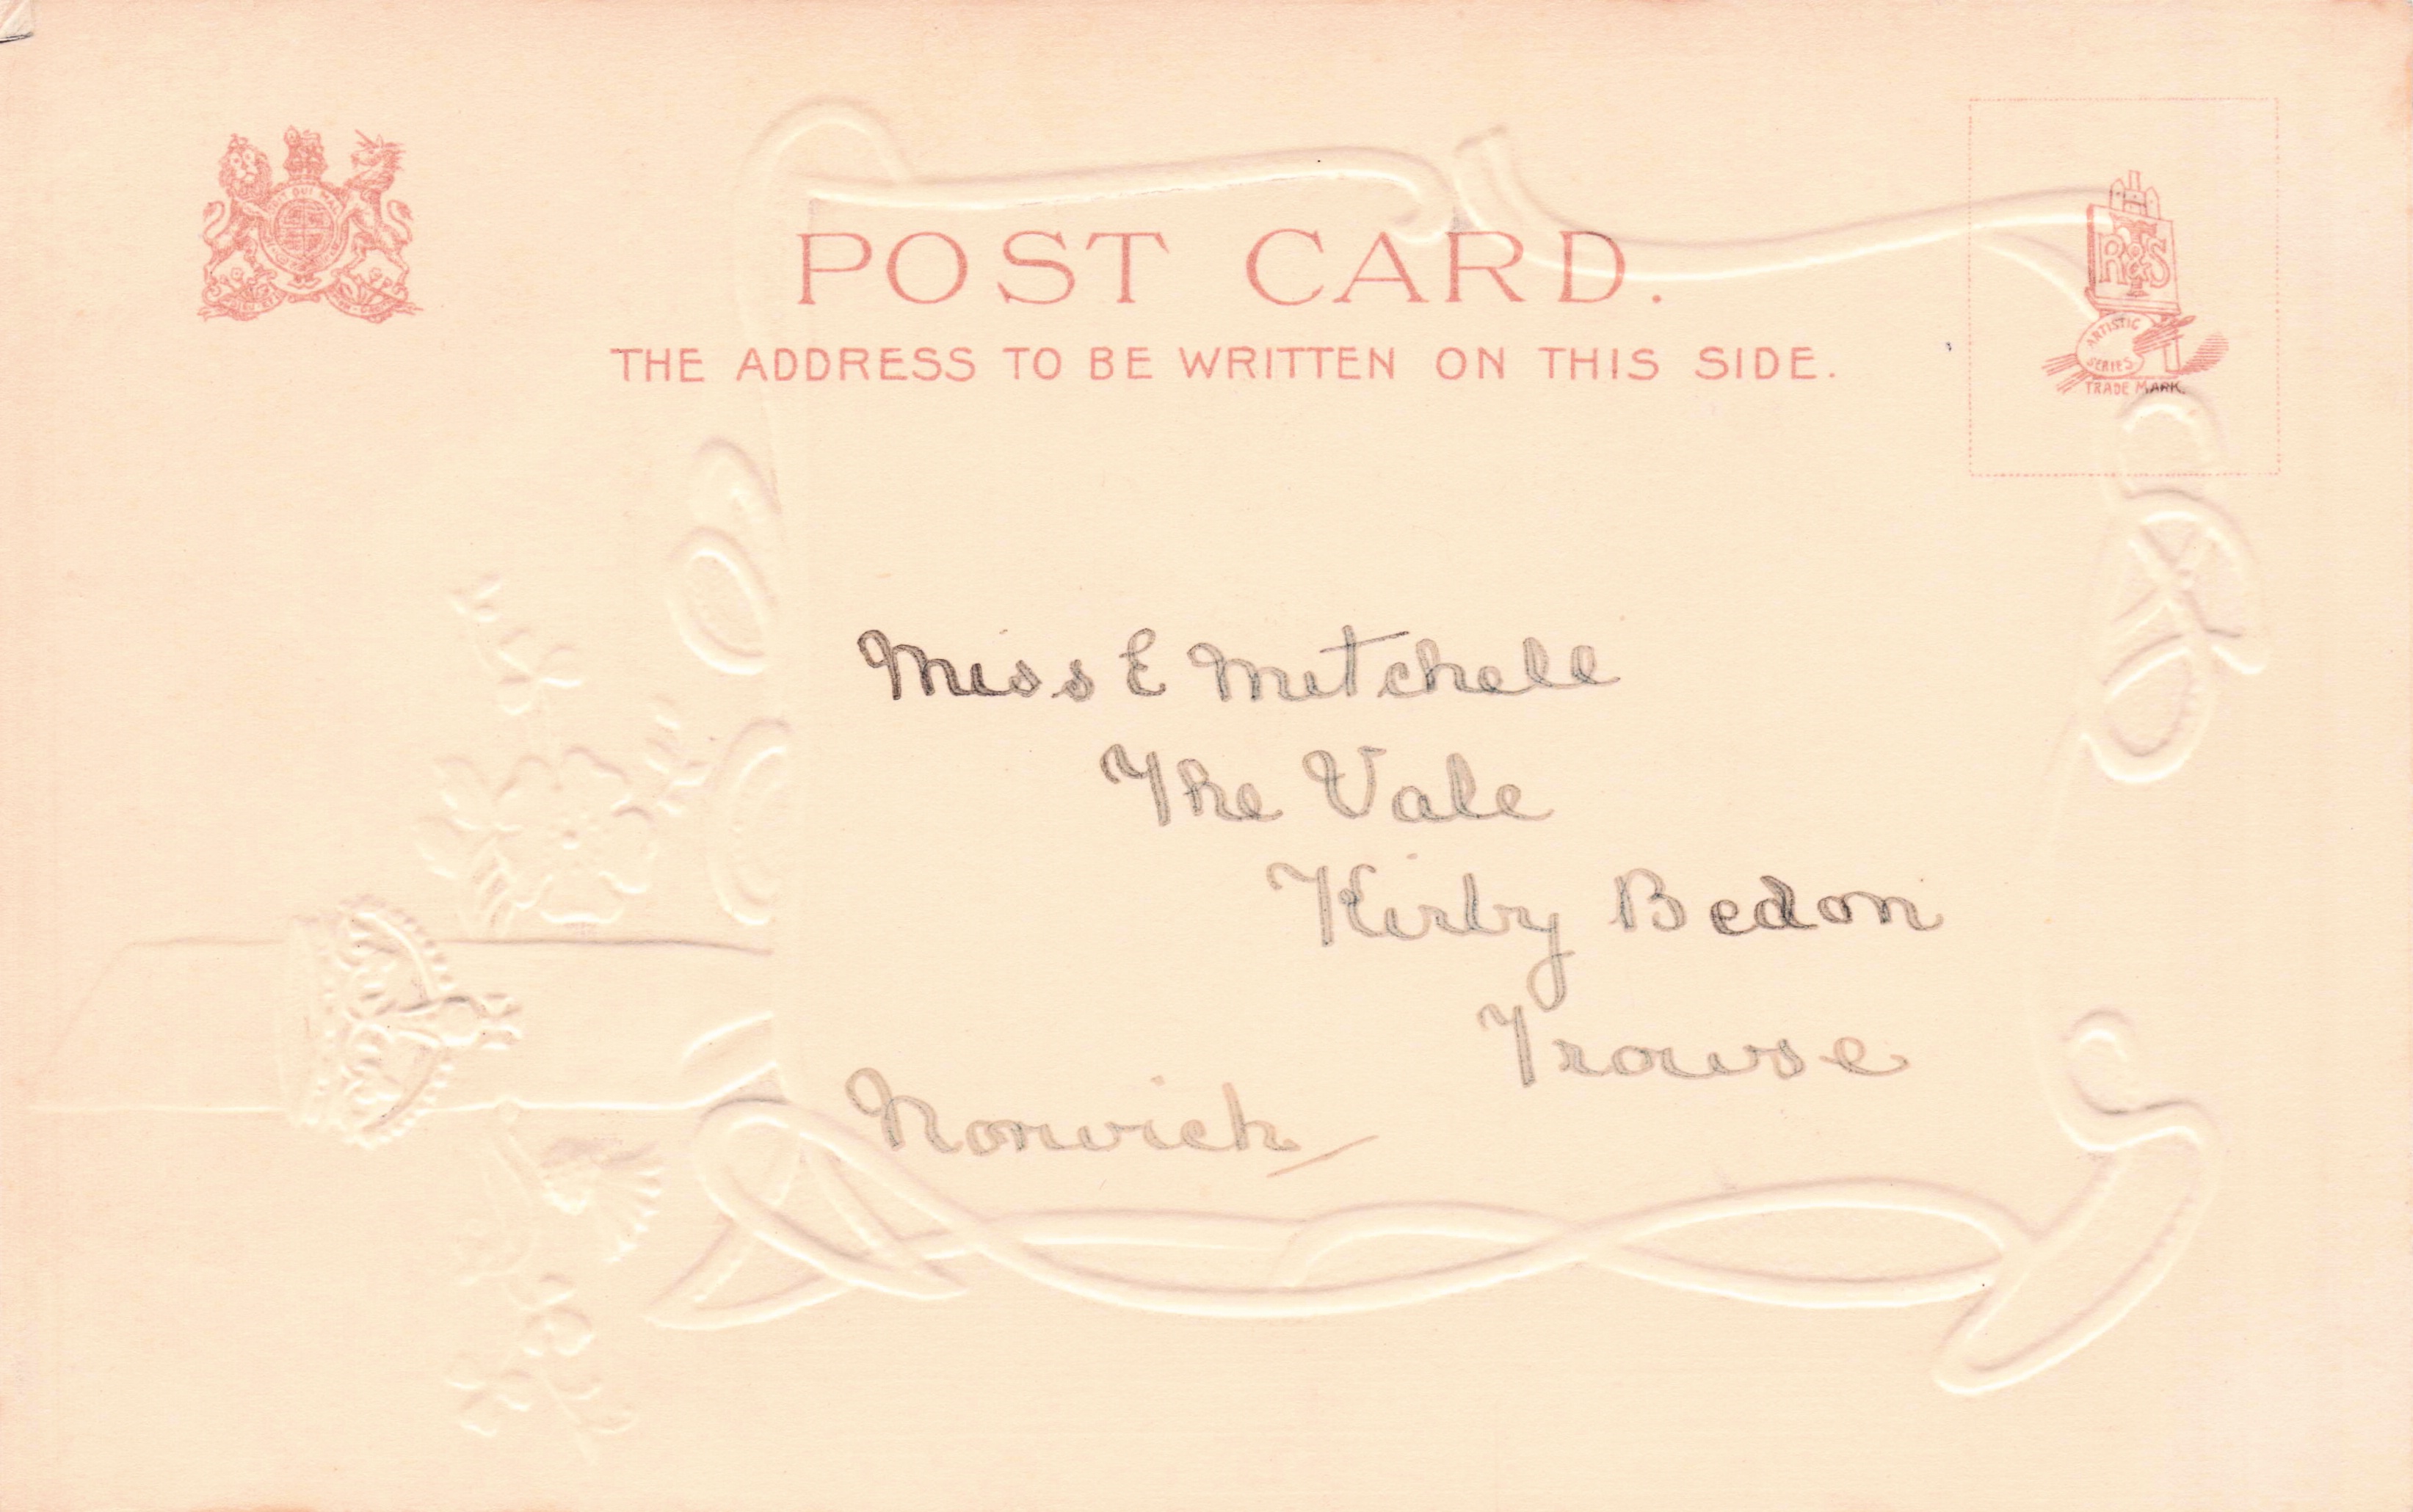 POST CARD.
THE ADDRESS TO BE WRITTEN ON THIS SIDE.
R & S
ARTISTIC
SERIES
TRADE MARK.
Miss E Mitchell
The Vale
Kirby Bedon
Trowse
Norwich